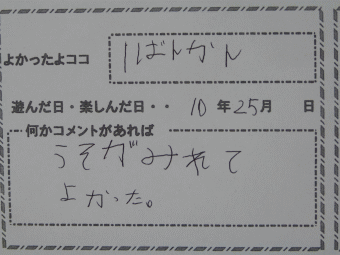 よかったよココ 11ばんかん
遊んだ日・楽しんだ日・・ 10 年 25月 日
何かコメントがあれば
うそがみれて
よかった。